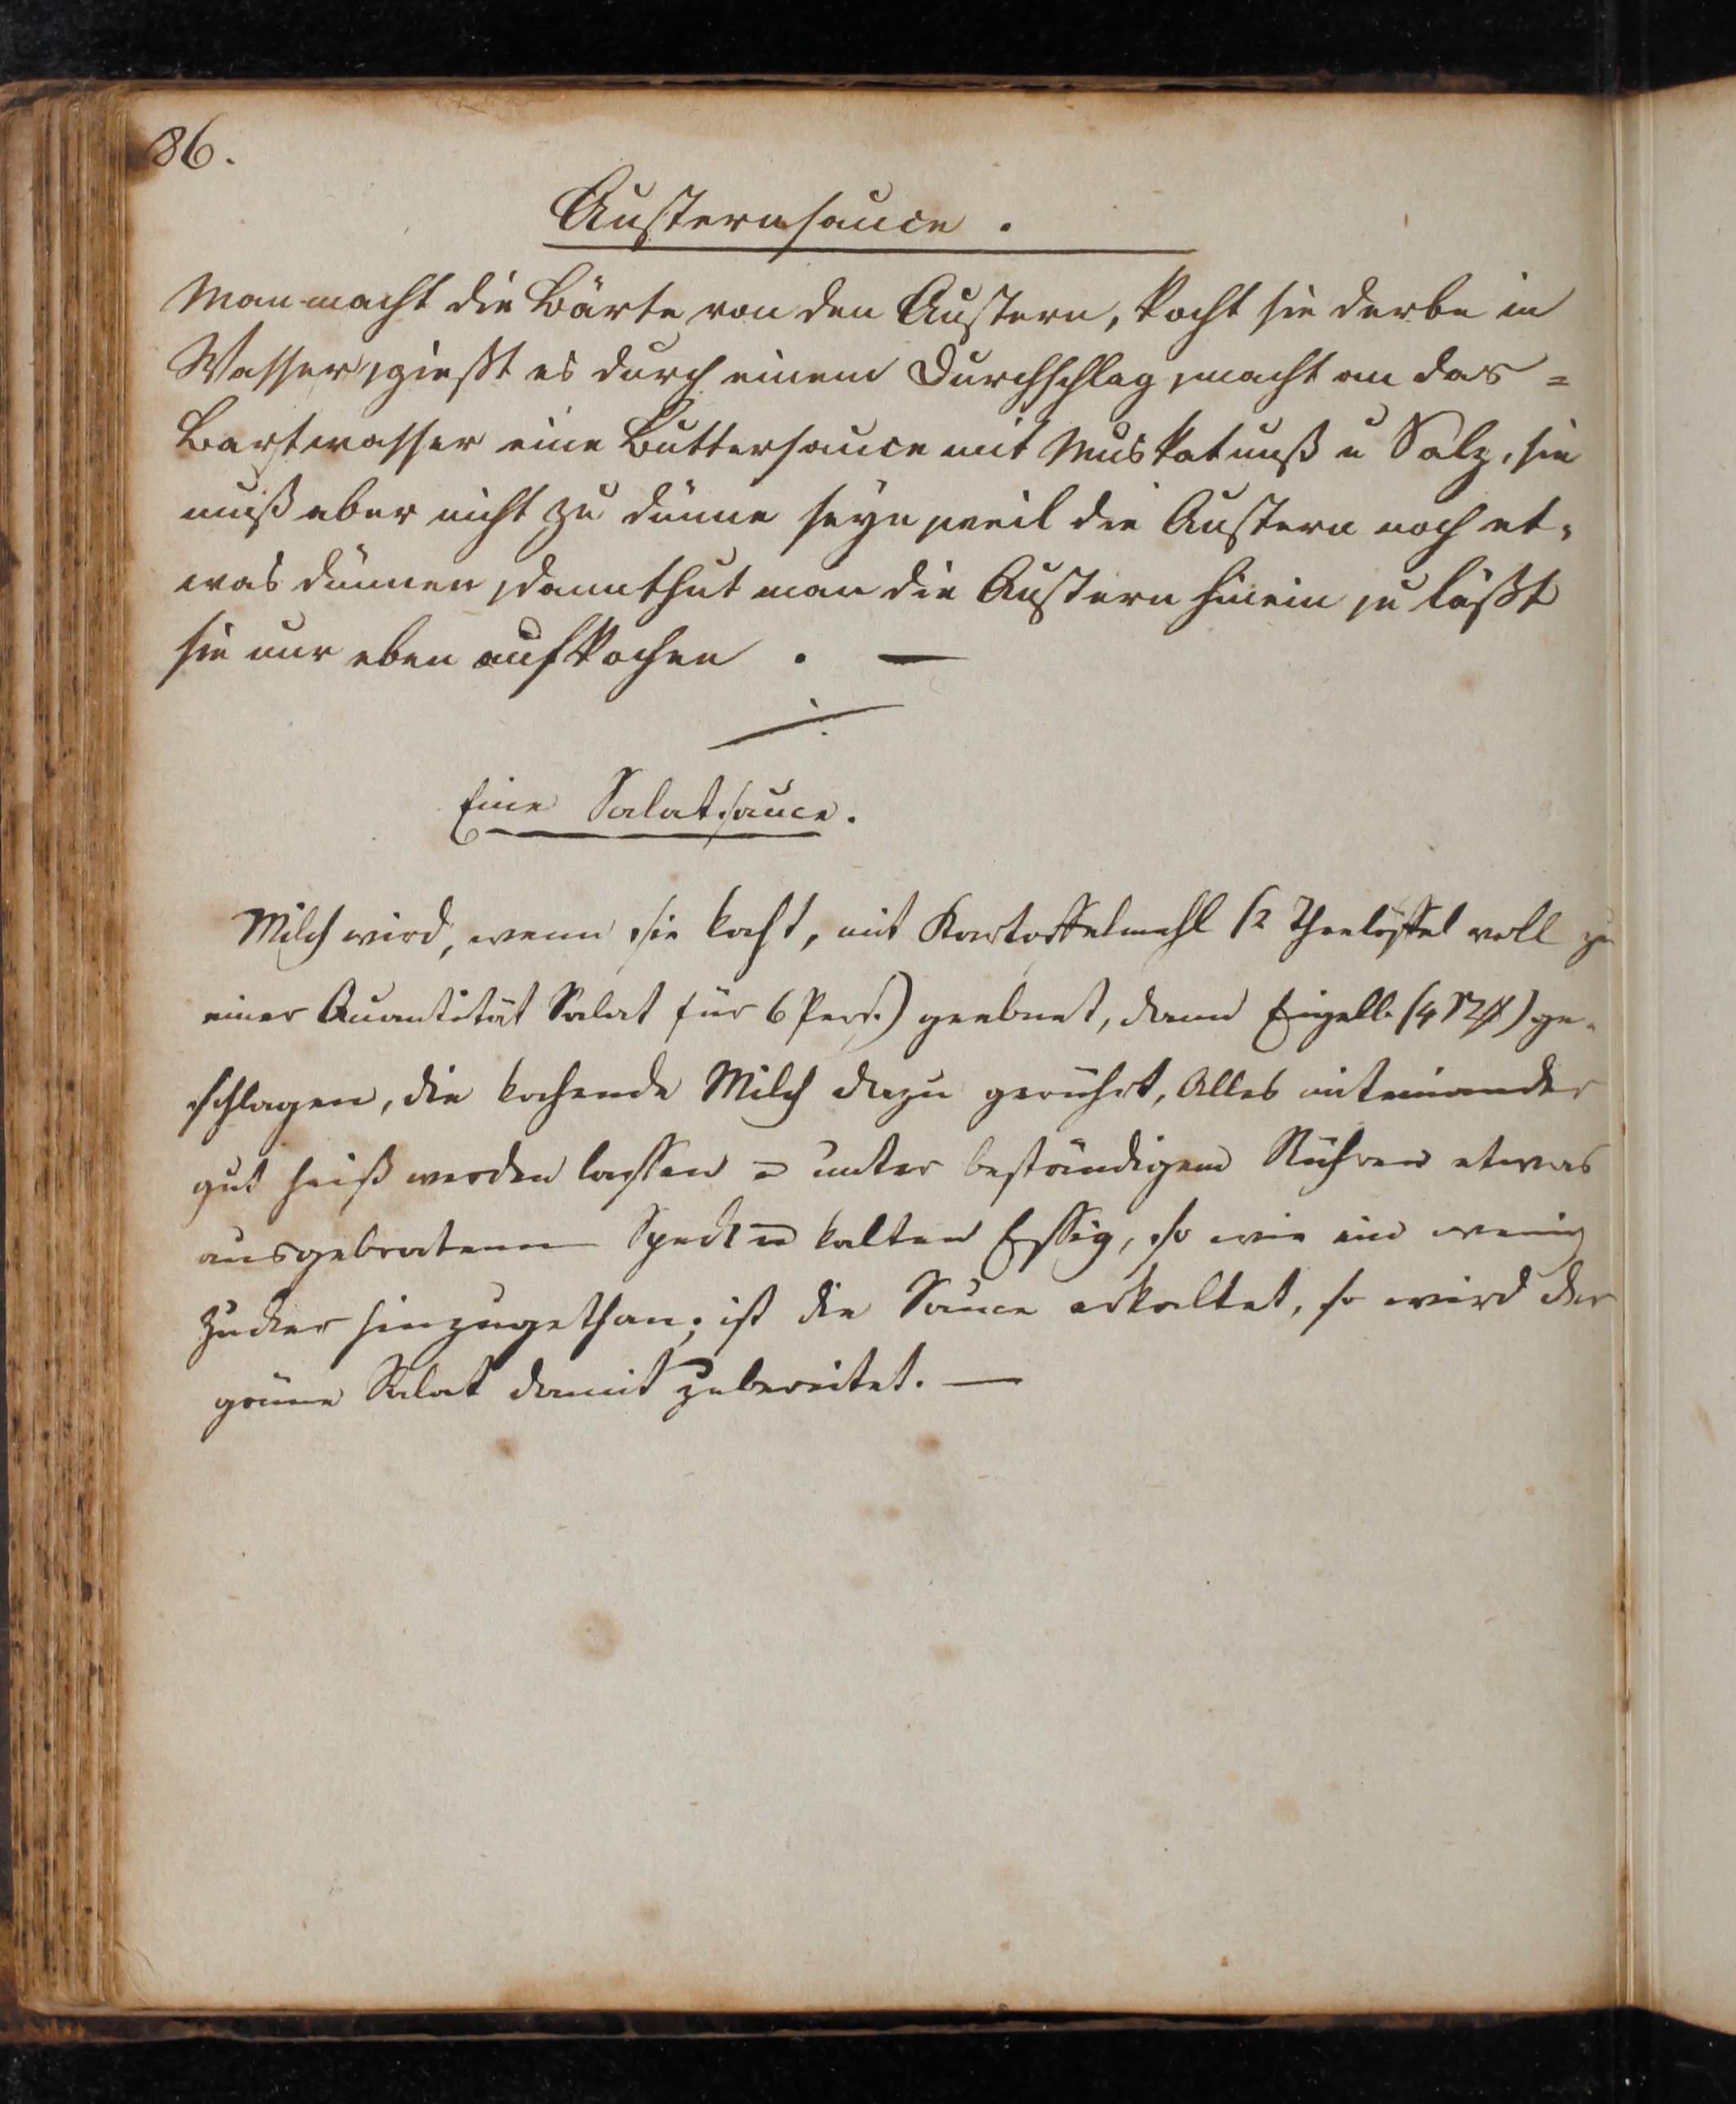 86.
Austernsauce.
Man macht die Bärte von den Austern, kocht sie derbe in
Wasser, gießt es durch einem Durchschlag, macht an das =
Bartwasser eine Buttersauce mit Muskatnuß u Salz, sie
muß aber nicht zu dünne seyn, weil die Austern noch et,
was dünnen, dann thut man die Austern hinein, u läßt
sie nur eben aufkochen. —
Eine Salatsauce.
Milch wird, wenn sie kocht, mit Kartoffelmehl (2 Theelöffel voll zu
einer Quantität Salat für 6 Pers.) geebnet, dann Eigelb (4 ) ge-
schlagen, die kochende Milch dazu gerührt, Alles miteinander
gut heiß werden lassen u unter beständigem Rühren etwas
ausgebratenen Speck u kalten Essig, so wie ein wenig
Zucker hinzugethan; ist die Sauce erkaltet, so wird der
grüne Salat damit zubereitet. —